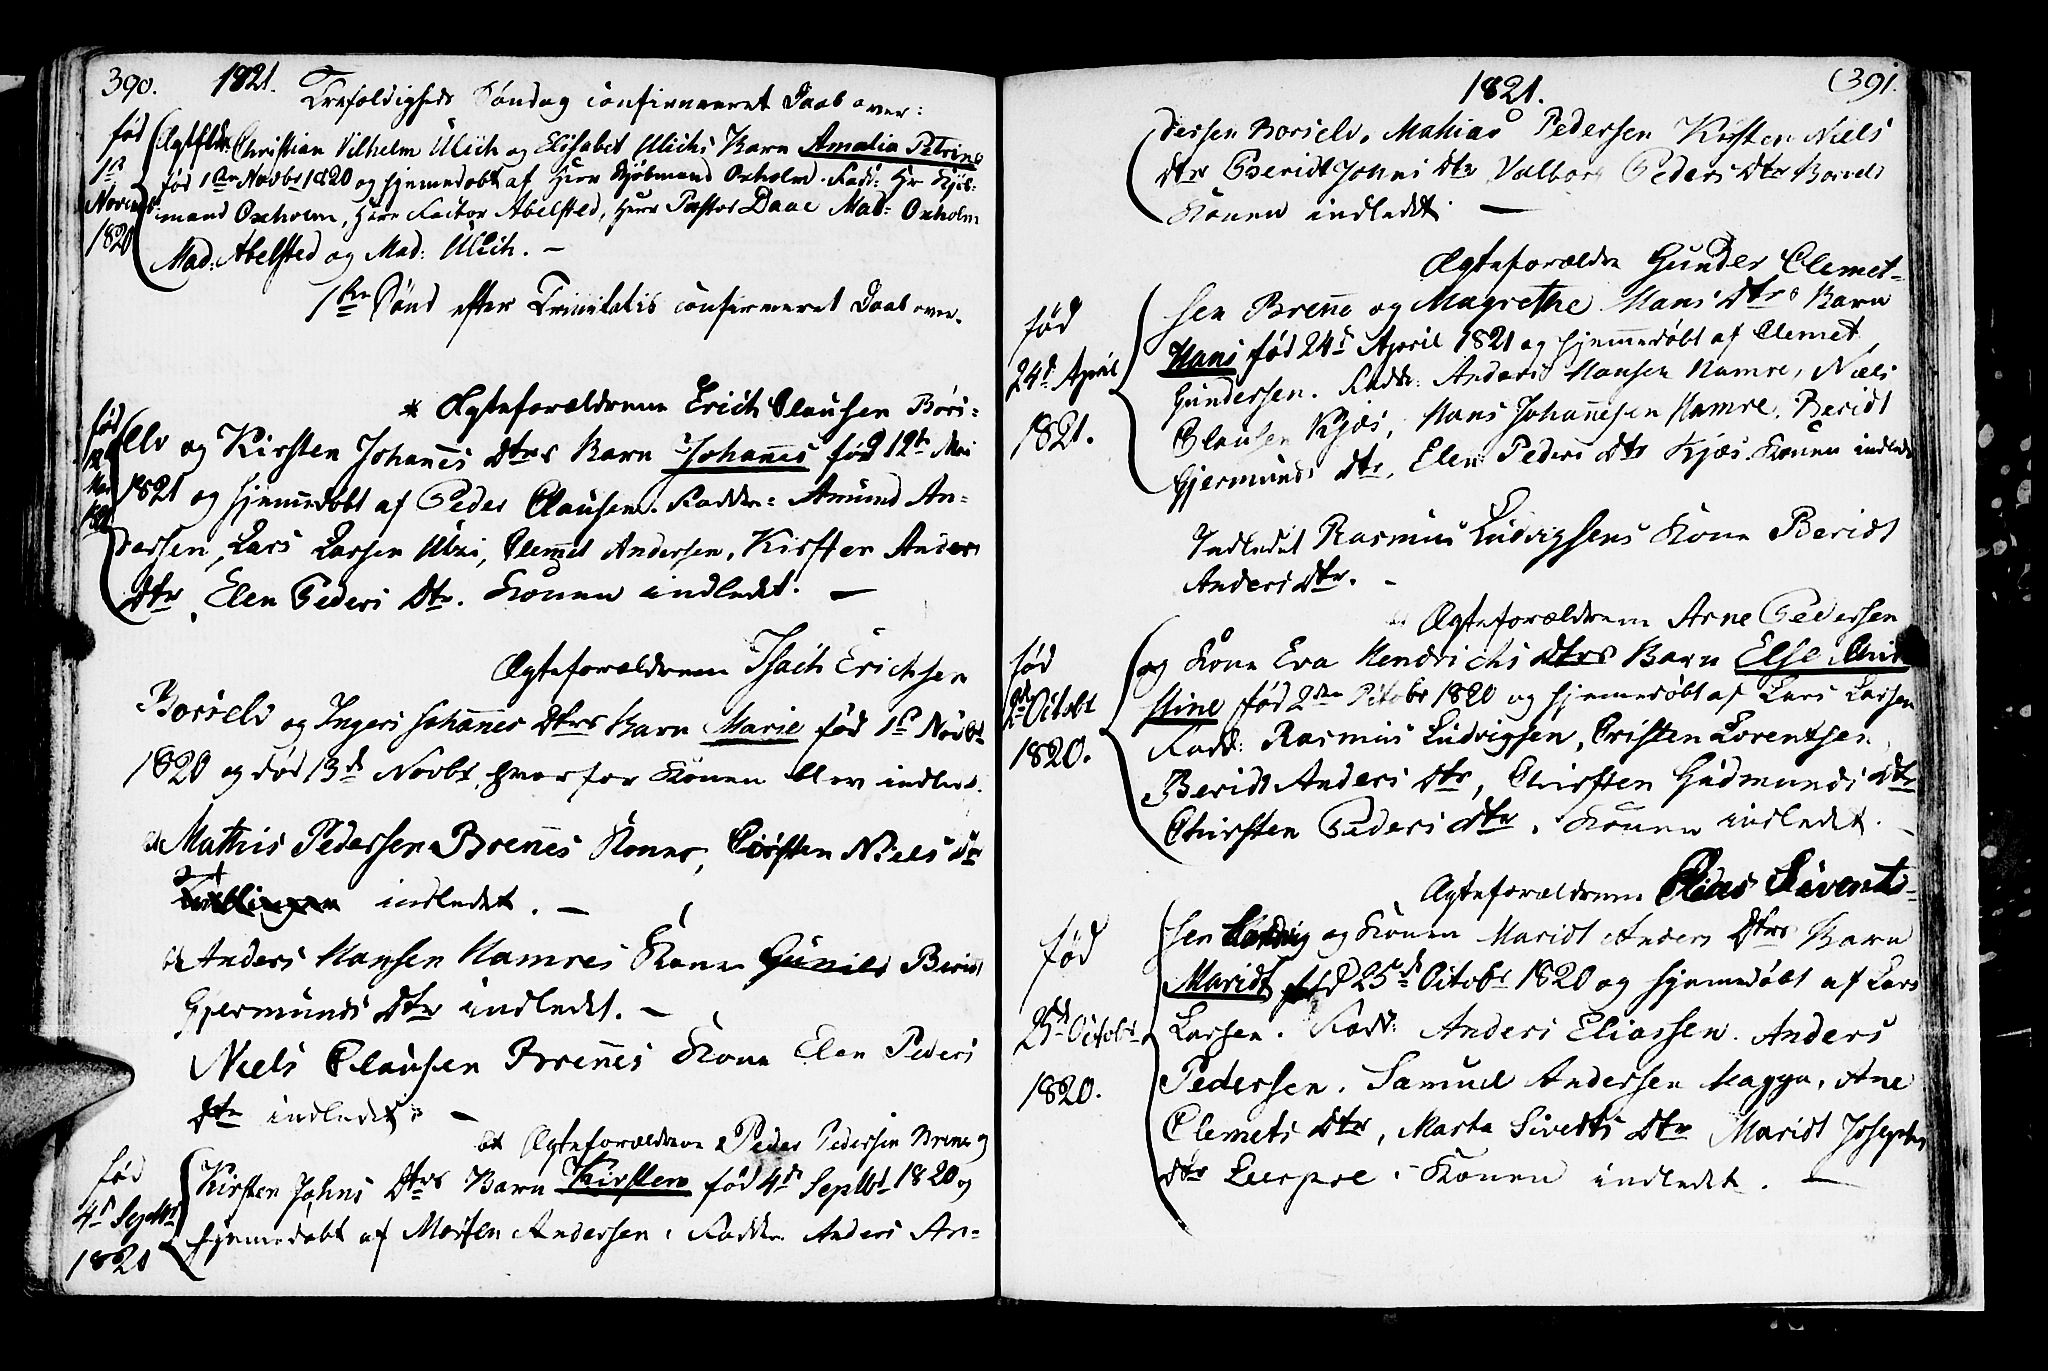 390. 1821. Trefoldigheds Søndag confirmeret Daab over:
Christian Vilhelm Ulich og Elisabet Ulichs Barn Amalia Petrine
født 1ste Novbr 1820 og hjemmedøbt af Herr Kjøbmand Oxholm. Fadd: Hr Kjöb-
mand Oxholm, Herr Factor Abelsted, Herr Pastor Daae Mad: Oxholm
Mad: Abelsted og Mad: Ulich. —
fød
1ste
Novemb:
1820
1ste Sønd efter Trinitatis confirmeret Daab over.
* Ægteforældrene Erich Clausen Børs-
elv og Kirsten Johannes Dtrs Barn Johannes fød 12te Mai
1821 og hjemmedøbt af Peder Clausen. Faddr: Amund An-
dersen, Lars Larsen Ulvi, Clemet Andersen, Kirsten Anders
Dtr, Elen Peders Dtr. Konen indledet. —
fød
12
Mai
1821
Ægteforældrene Isach Erichsen
Børselv og Ingers Johannes Dtrs Barn Marie fød 1ste Novbr
1820 og død 13de Novbr, hvorfor Konen blev indledt.
Mathis Pedersen Brennes Kone, Cirsten Niels Dtr
indledet. —
Anders Hansen Hamres Kone Gunild Beridt
Gjermunds Dtr indledet. —
Niels Clausen Brennes Kone Elen Peders
Dtr indledet. —
Ægteforældrene Peder Pedersen Brenne og
Kirsten Johns Dtrs Barn Kirsten fød 4de Septbr 1820 og
hjemmedøbt af Morten Andersen. Faddr. Anders An-
fød
4de Septbr
1820
1821. (391.
dersen Borselv. Mathias Pedersen Kirsten Niels
Dtr Beridt Johns Dtr Valbor Peders Dtr Borselv
Konen indledet. —
Ægteforældre Gunder Clemet-
sen Brenne og Magrethe Hans Dtrs Barn
Hans fød 24de April 1821 og hjemmedøbt af Clemet
Gundersen. Faddr: Anders Hansen Hamre, Niels
Clausen Kjæs, Hans Johannesen Hamre. Beridt
Gjermunds Dtr. Elen Peders Dtr Kjæs. Konen indledt
fød
24de April
1821.
Indledet Rasmus Ludvigsens Kone Beridt
Anders Dtr. –
Ægteforældrene Arne Pedersen
og Kone Eva Hendrichs Dtrs Barn Else Chri-
stine fød 2den Octobr 1820 og hjemmedøbt af Lars Larsen
Fadd: Rasmus Ludvigsen, Cristen Lorentsen,
Beridt Anders Dtr, Chirsten Gudmunds Dtr
Chirsten Peders Dtr. Konen indledet. –
fød
2den Octobr
1820.
Ægteforældrene Elias Sivert-
sen og Konen Maridt Anders Dtrs Barn
Maridt fød 25de Octobr 1820 og hjemmedøbt af Lars
Larsen. Fadd: Anders Eliassen. Anders
Pedersen. Samuel Andersen Magga. Ane
Clemets Dtr, Marta Siverts Dtr Maridt Josephs
Dtr Leerpoe. Konen indledet. —
fød
25de Octobr
1820.